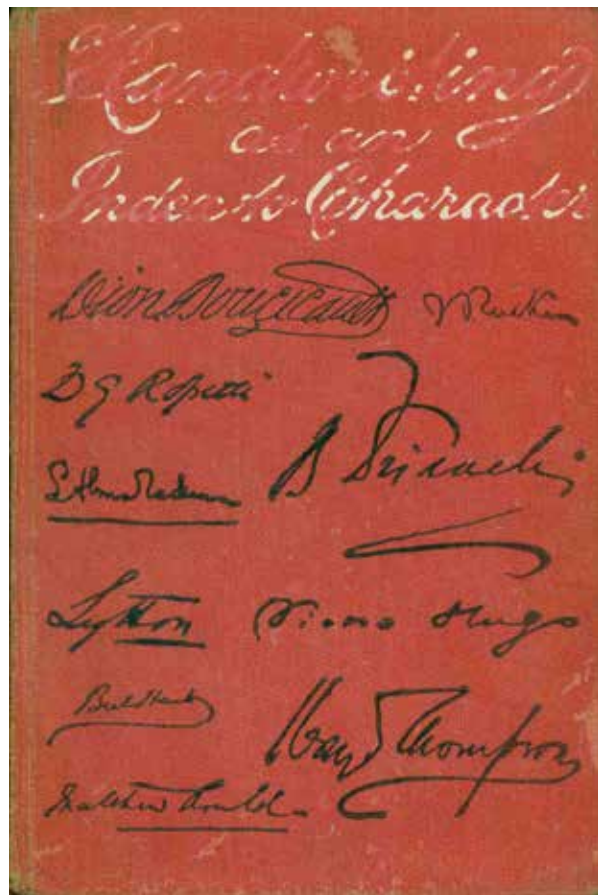 Handwriting
as an
Index to Character
Dion Boucicault J Ruskin
D G Rossetti
B Disraeli
L Alma Tadema
Lytton Victor Hugo
Bret Harte Henry Thompson
Matthew Arnold